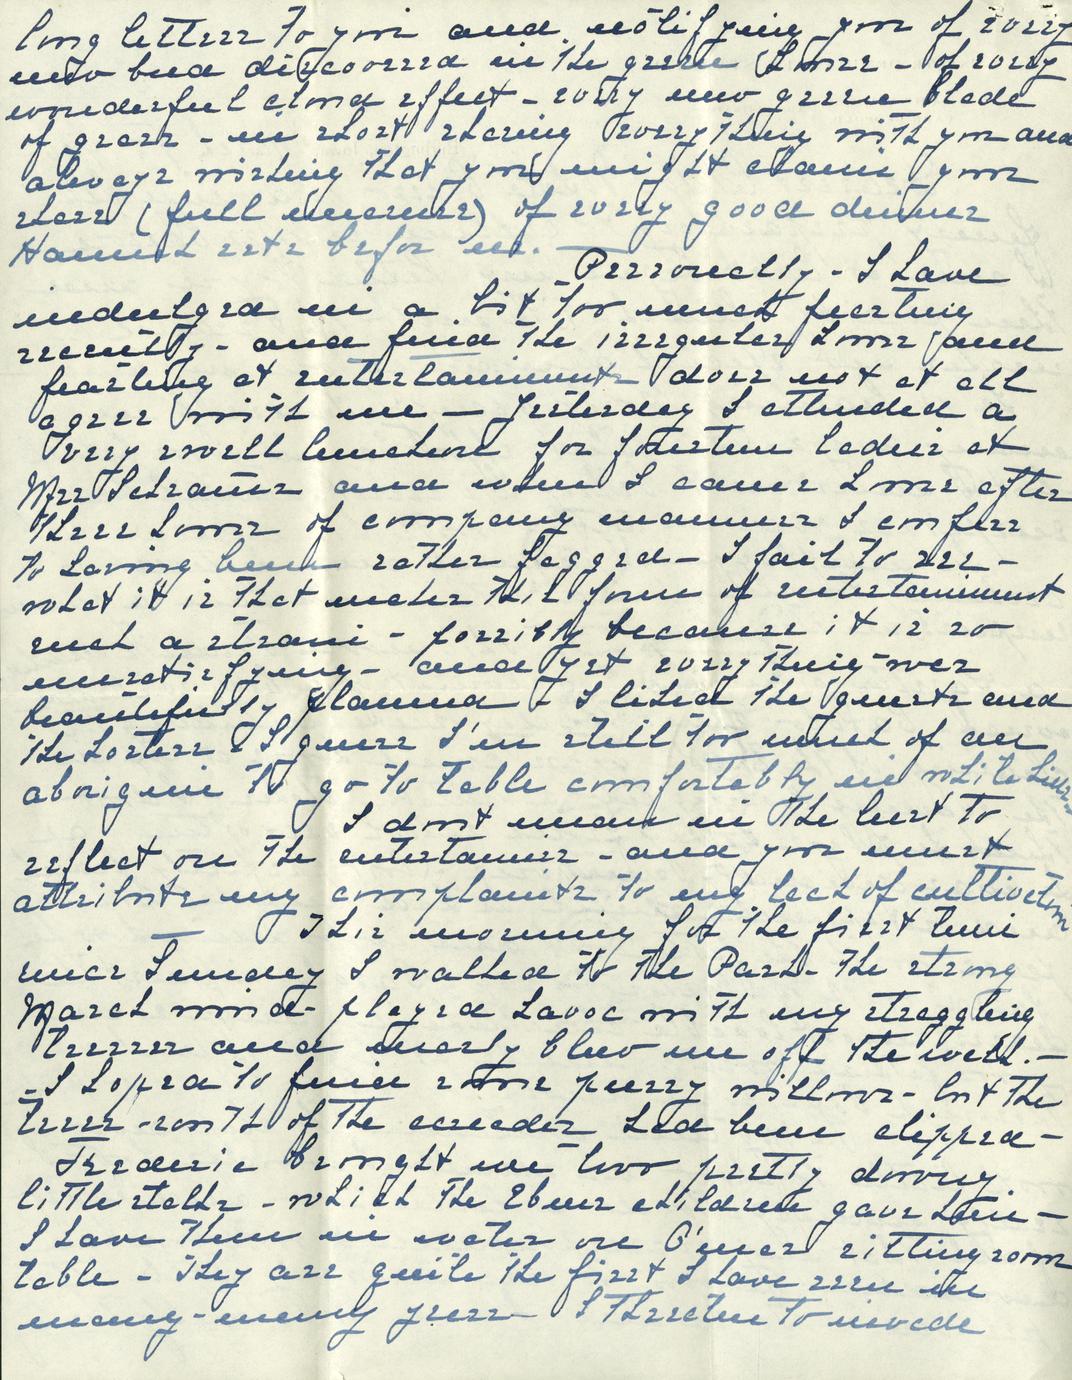 long letters to you and notifying you of every
new bud discovered in the green house - of every
wonderful cloud effect - every new green blade
of grass - in short sharing everything with you and
always wishing that you might claim your
share (full measure) of every good dinner
Hannah sets before me.
Personally - I have
indulged in a bit too much feasting
recently - and find the irregular hours and
feasting at entertainments does not at all
agree with me - yesterday I attended a
very swell luncheon for fourteen ladies at
Mrs Schramms and when I came home after
three hours of company manners I confess
to having been rather fagged - I fail to see -
what it is that makes this form of entertainment
such a strain - possibly because it is so
unsatisfying - and yet everything was
beautifully planned & I liked the guests and
the hostess & I guess I'm still too much of an
aborigine to go to table comfortably in white linen -
I dont mean in the least to
reflect on the entertainers - and you must
attribute my complaints to my lack of cultivation
This morning for the first time
since Sunday I walked to the Park - the strong
March wind - played havoc with my straggling
tresses and nearly blew me off the walk. -
- I hoped to find some pussy willows - but the
trees - south of the cascades had been clipped -
Frederic brought me two pretty downy
little stalks - which the Ebner children gave him -
I have them in water on O'mas sitting room
table - They are quite the first I have seen in
many - many years - I threaten to invade